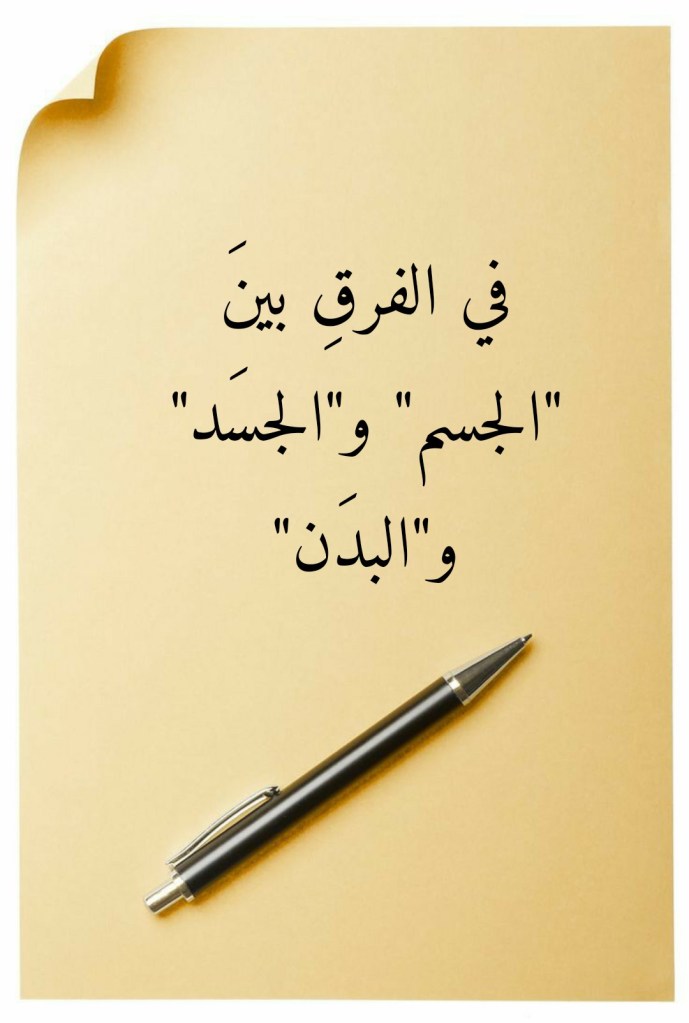 في الفرقِ بينَ
"الجسم" و"الجسَد"
و"البدَن"